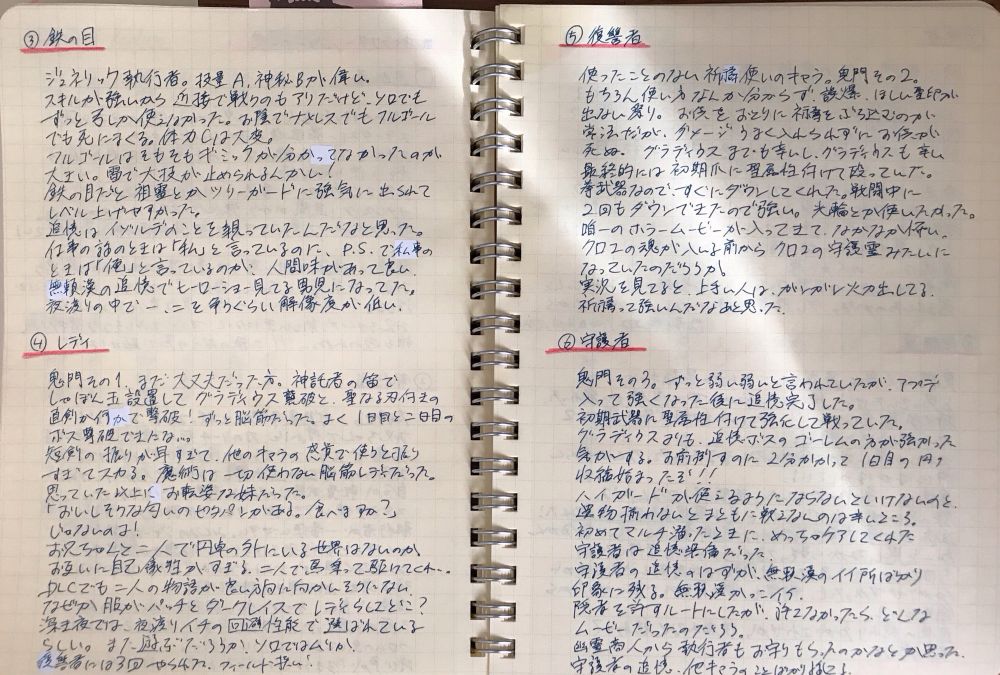 ③ 鉄の目
ジェネリック執行者。技量A、神秘Bが偉い。
スキルが強いから近接で戦うのもアリだけど、ソロでも
ずっと弓しか使えなかった。お陰でナメレスでもフルゴール
でも死にまくる。体力Cは大変。
フルゴールはそもそもギミックが分かってなかったのが
大きい。雷で大技が止められるんかい!
鉄の目だと祖霊とかツリーガードに強気に出られて
レベル上げしやすかった。
追憶はイゾルデのことを親っていたんだなと思った。
仕事の話のときは「私」と言っているのに、P.S.で私事の
ときは「俺」と言っているのが、人間味があって良い。
無頼漢の追憶でヒーローショー見てる男児になってた。
夜渡りの中で一、二を争うぐらい解像度が低い。
④ レディ
鬼門その1、まだ大丈夫だった方。神託者の笛で
しゃぼん玉設置してグラディウス撃破と、聖なる刃付きの
直剣か何かで撃破!ずっと脳筋だった。よく1日目と二日目の
ボス撃破できたな…
短剣の振りが早すぎて、他のキャラの感覚で使うと振り
すぎてスカる。魔術は一切使わない脳筋レディだった。
思っていた以上に、お転婆な妹だった。
「おいしそうな匂いのやつパンがある。食べますか?」
じゃないのよ!
お兄ちゃんと二人で円卓の外にいる世界はないのか
お互いに自己犠牲がすぎる。二人で馬乗って駆けてくれ…
DLCでも二人の物語が良い方向に向かしそうにない
なぜか服がパッチとダークレイスでレディらしさどこ?
深き夜では、夜渡りイチの回避性能で選ばれている
らしい。また遊ぶだろうか、ソロではムリか。
復讐者には3回やられた、フィールド狭い!
⑤ 復讐者
使ったことのない祈祷使いのキャラ。鬼門その2。
もちろん使い方なんか分からず誘爆、ほしい聖印が
出ない祭り。お供をおとりに祈祷をぶち込むのが
常法だが、ダメージうまく入れられずにお供が
死ぬ。グラディウスまでも辛いし、グラディウスも辛い
最終的には初期爪に聖属性付けて殴っていた。
聖武器なので、すぐにダウンしてくれた。戦闘中に
2回もダウンできたので強い。光輪とか使いたかった。
唯一のホラームービーが入ってきて、なかなか怖い。
クロエの魂が入る前からクロエの守護霊みたいに
なっていたのだろうか
実況を見てると、上手い人は、がンがン火力出してる。
祈祷って強いんだなあと思った。
⑥ 守護者
鬼門その3。ずっと弱い弱いと言われていたが、アプデ
入って強くなった後に追憶完了した。
初期武器に聖属性付けて強化して戦っていた。
グラディウスよりも、追憶ボスのゴーレムの方が強かった
気がする。お前倒すのに2分かかって1日目の円
収縮始まったぞ!!
ハイガードが使えるようにならないといけないのと、
遺物揃わないとまともに戦えないのは辛いところ。
初めてマルチ潜ったときに、めっちゃケアしてくれた
守護者は追憶装備だった。
守護者の追憶のはずが、無頼漢のイイ所ばかり
印象に残る。無頼漢かっこイイ。
隠者を許すルートにしたが、許さなかったら、どんな
ムービーだったのだろう。
幽霊商人から執行者もお守りもらったのかなとか思った。
守護者の追憶、他キャラのことばかり